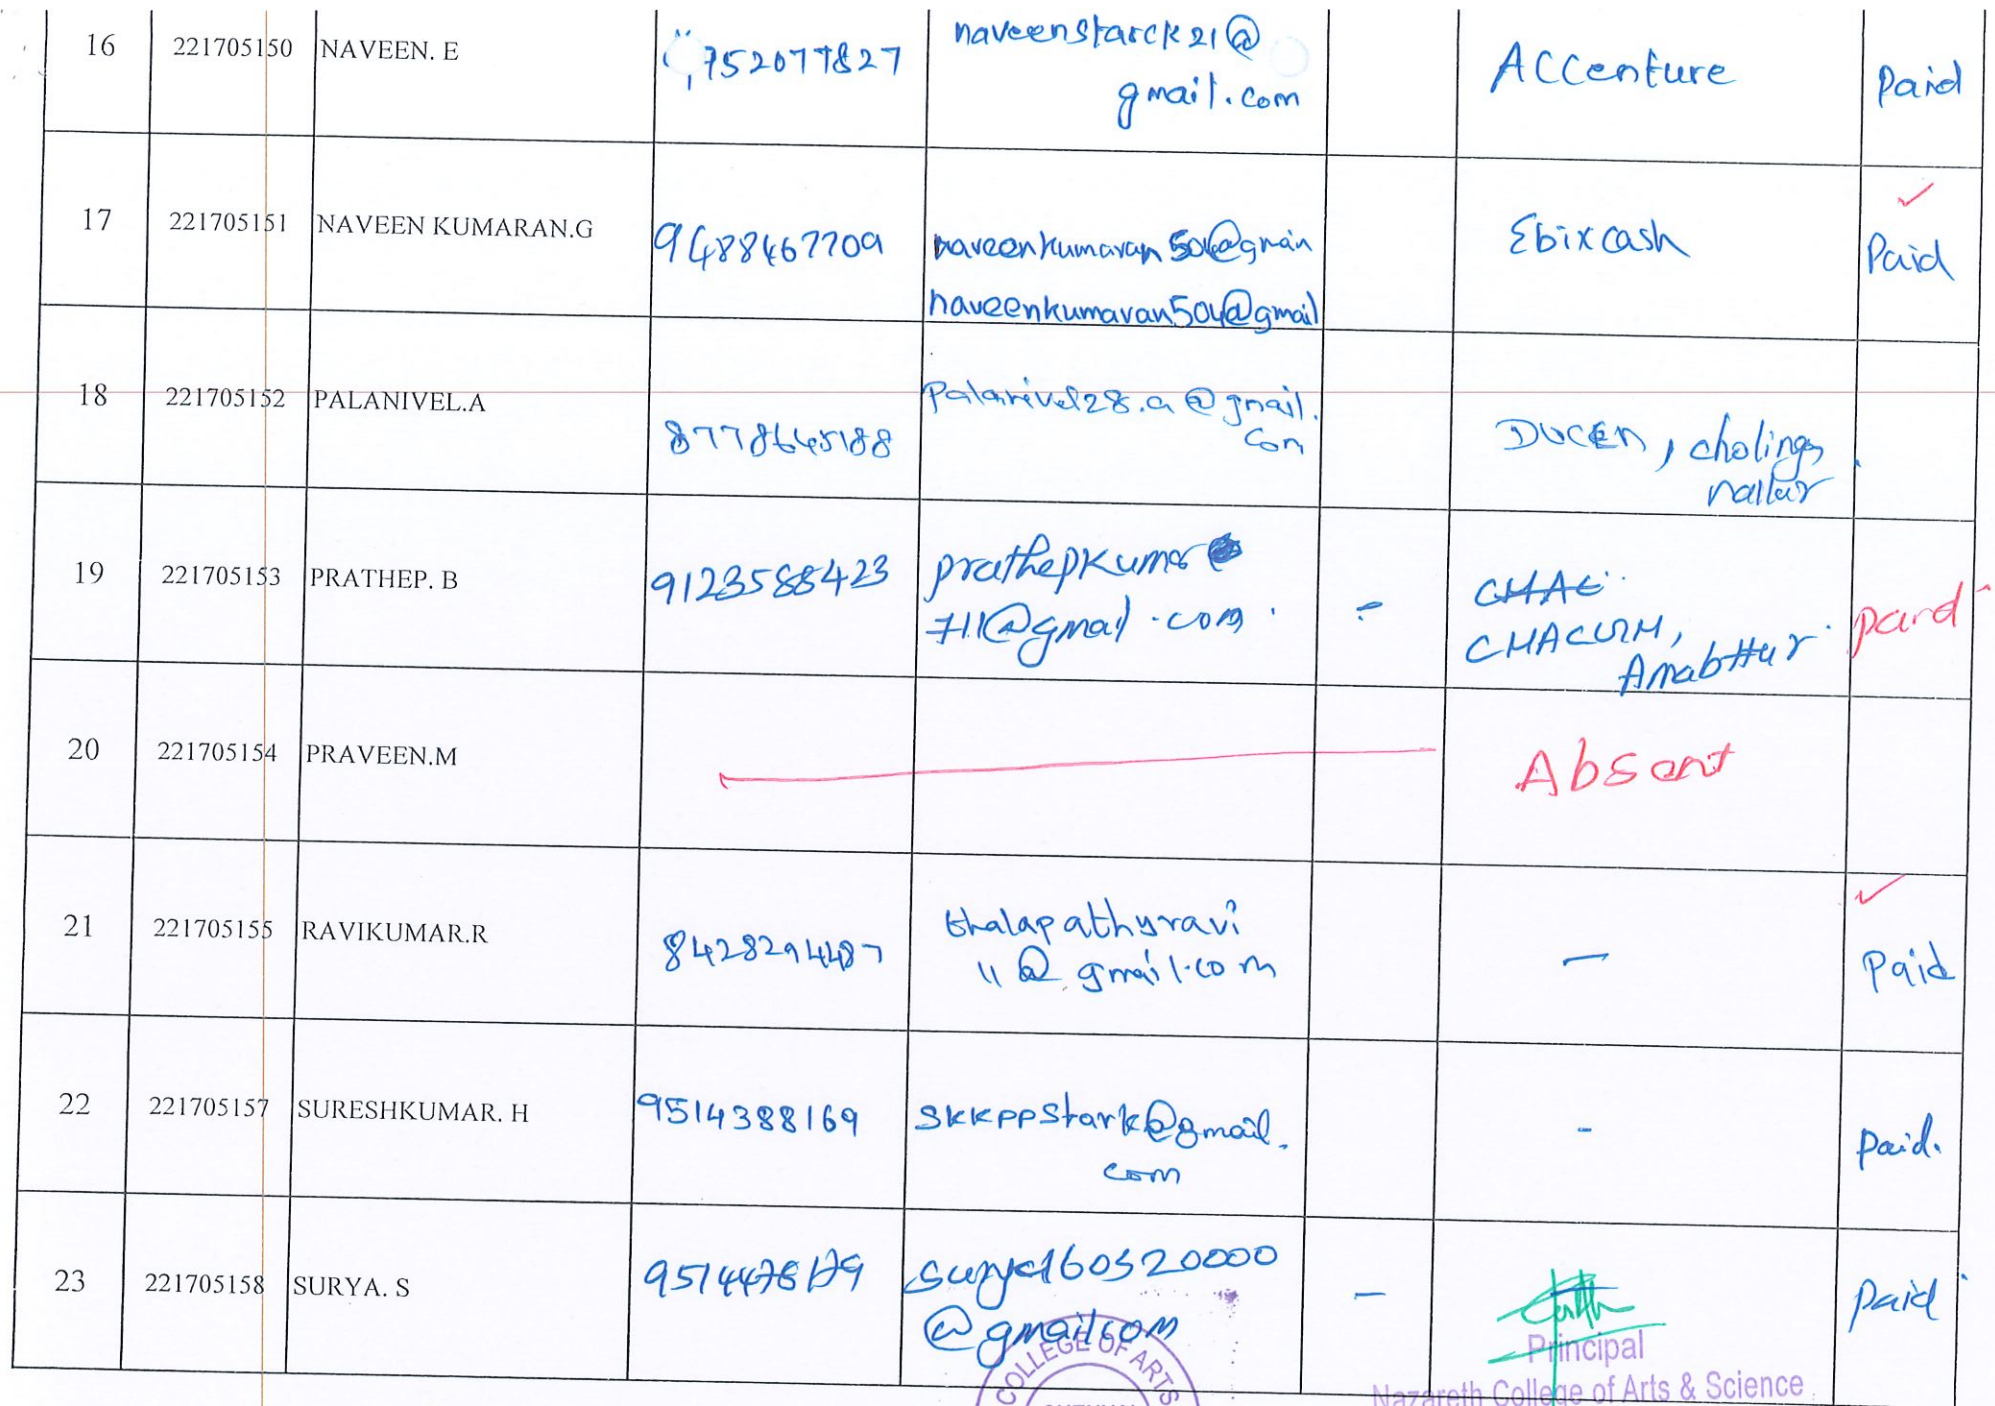 16 221705150 NAVEEN. E 752077827 naveenstarck21@ ACCenture Paid
gmail.com
17 221705151 NAVEEN KUMARAN.G 9488467709 naveenkumaran504@gmain Ebixcash Paid
naveenkumaran504@gmail
18 221705152 PALANIVEL.A 8778645188 Palanivel28.a@gmail. DUCEN, cholinga
com nallur
19 221705153 PRATHEP. B 9123588423 prathepkumar CHAE
711@gmail.com. - CHACUM, paid
Amabttur
20 221705154 PRAVEEN.M Absent
21 221705155 RAVIKUMAR.R 8428294487 thalapathyravi - Paid
11@gmail.com
22 221705157 SURESHKUMAR. H 9514388169 skkppstark@gmail. - paid.
com
23 221705158 SURYA. S surya160320000 - paid
@gmailcom
COLLEGE OF ARTS
Principal
Nazareth College of Arts & Science